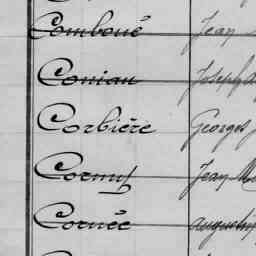 Comboué Jean
Coniau Joseph
Corbière Georges
Jean
Cornée Augustin